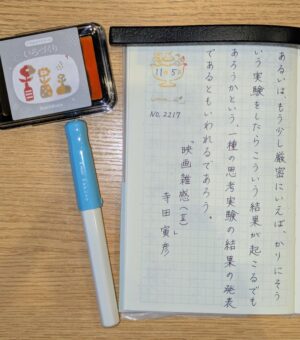 あるいは、もう少し厳密にいえば、かりにそう
いう実験をしたらこういう結果が起こるでも
あろうかという、一種の思考実験の結果の発表
であるともいわれるであろう。
「映画雑感(Ⅲ)」
寺田寅彦
11 5
NO. 2217
いろづくり